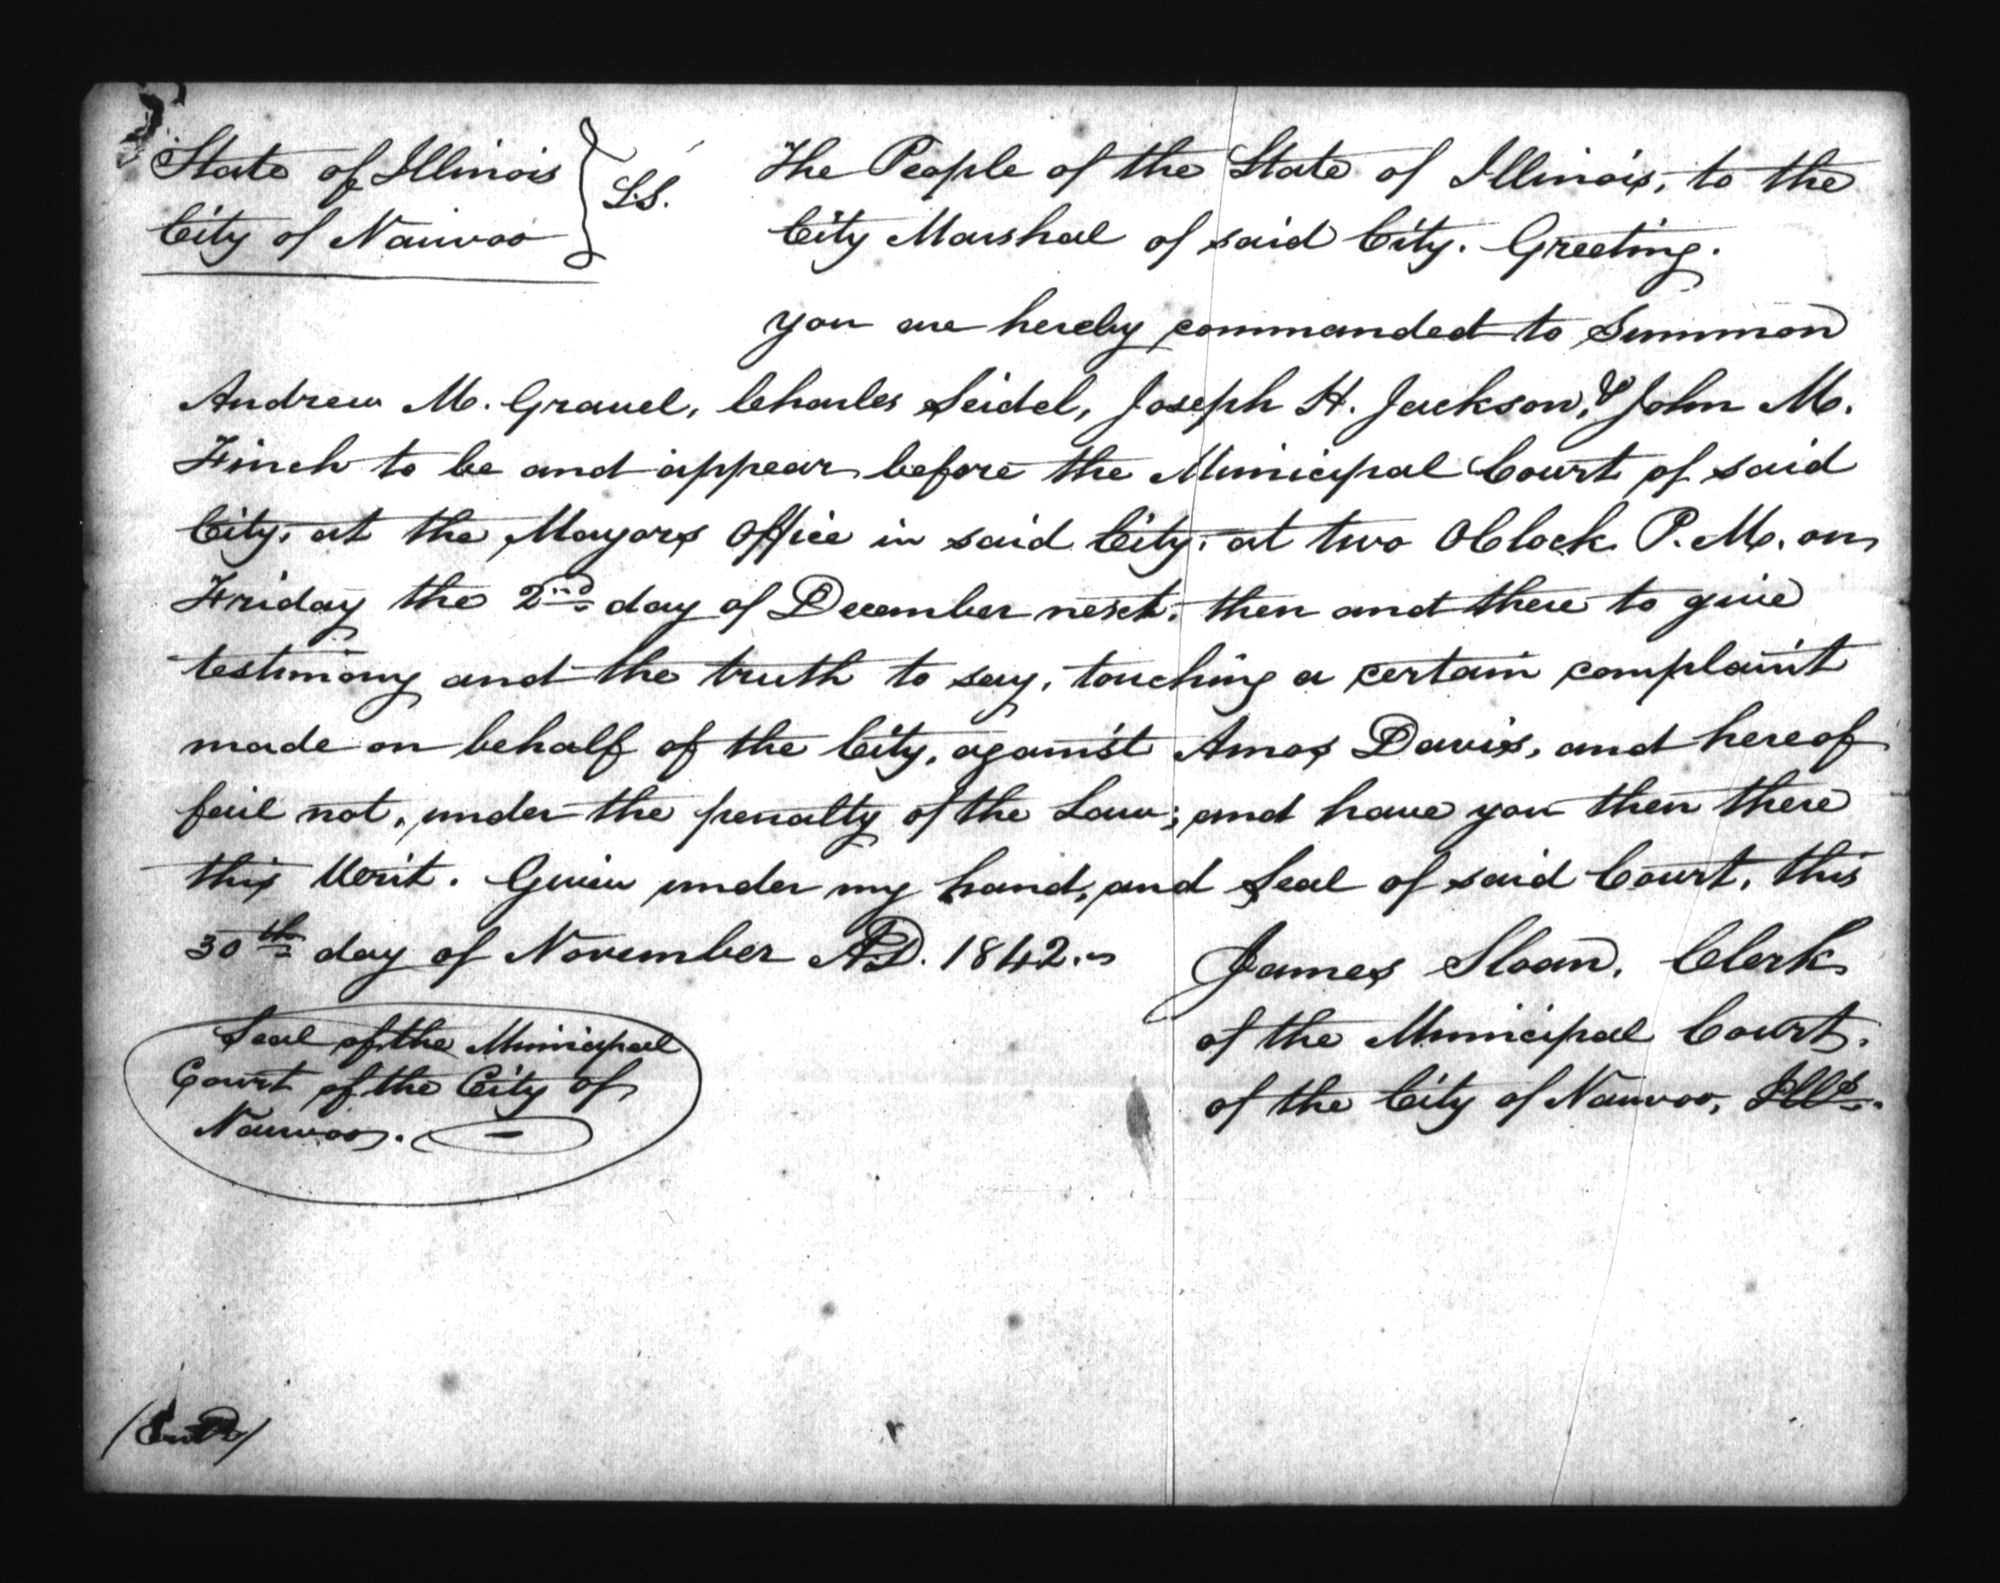 State of Illinois } S.S. The People of the State of Illinois, to the
City of Nauvoo } City Marshal of said City. Greeting.
you are hereby commanded to Summon
Andrew M. Gravel, Charles Seidel, Joseph H. Jackson, & John M.
Finch to be and appear before the Municipal Court of said
City, at the Mayors Office in said City, at two OClock P.M. on
Friday the 2nd day of December next, then and there to give
testimony and the truth to say, touching a certain complaint
made on behalf of the City, against Amos Davis, and hereof
fail not, under the penalty of the Law; and have you then there
this Writ. Given under my hand, and Seal of said Court, this
30th day of November A.D. 1842.
James Sloan, Clerk
of the Municipal Court.
of the City of Nauvoo, Ills.
Seal of the Municipal
Court of the City of
Nauvoo.